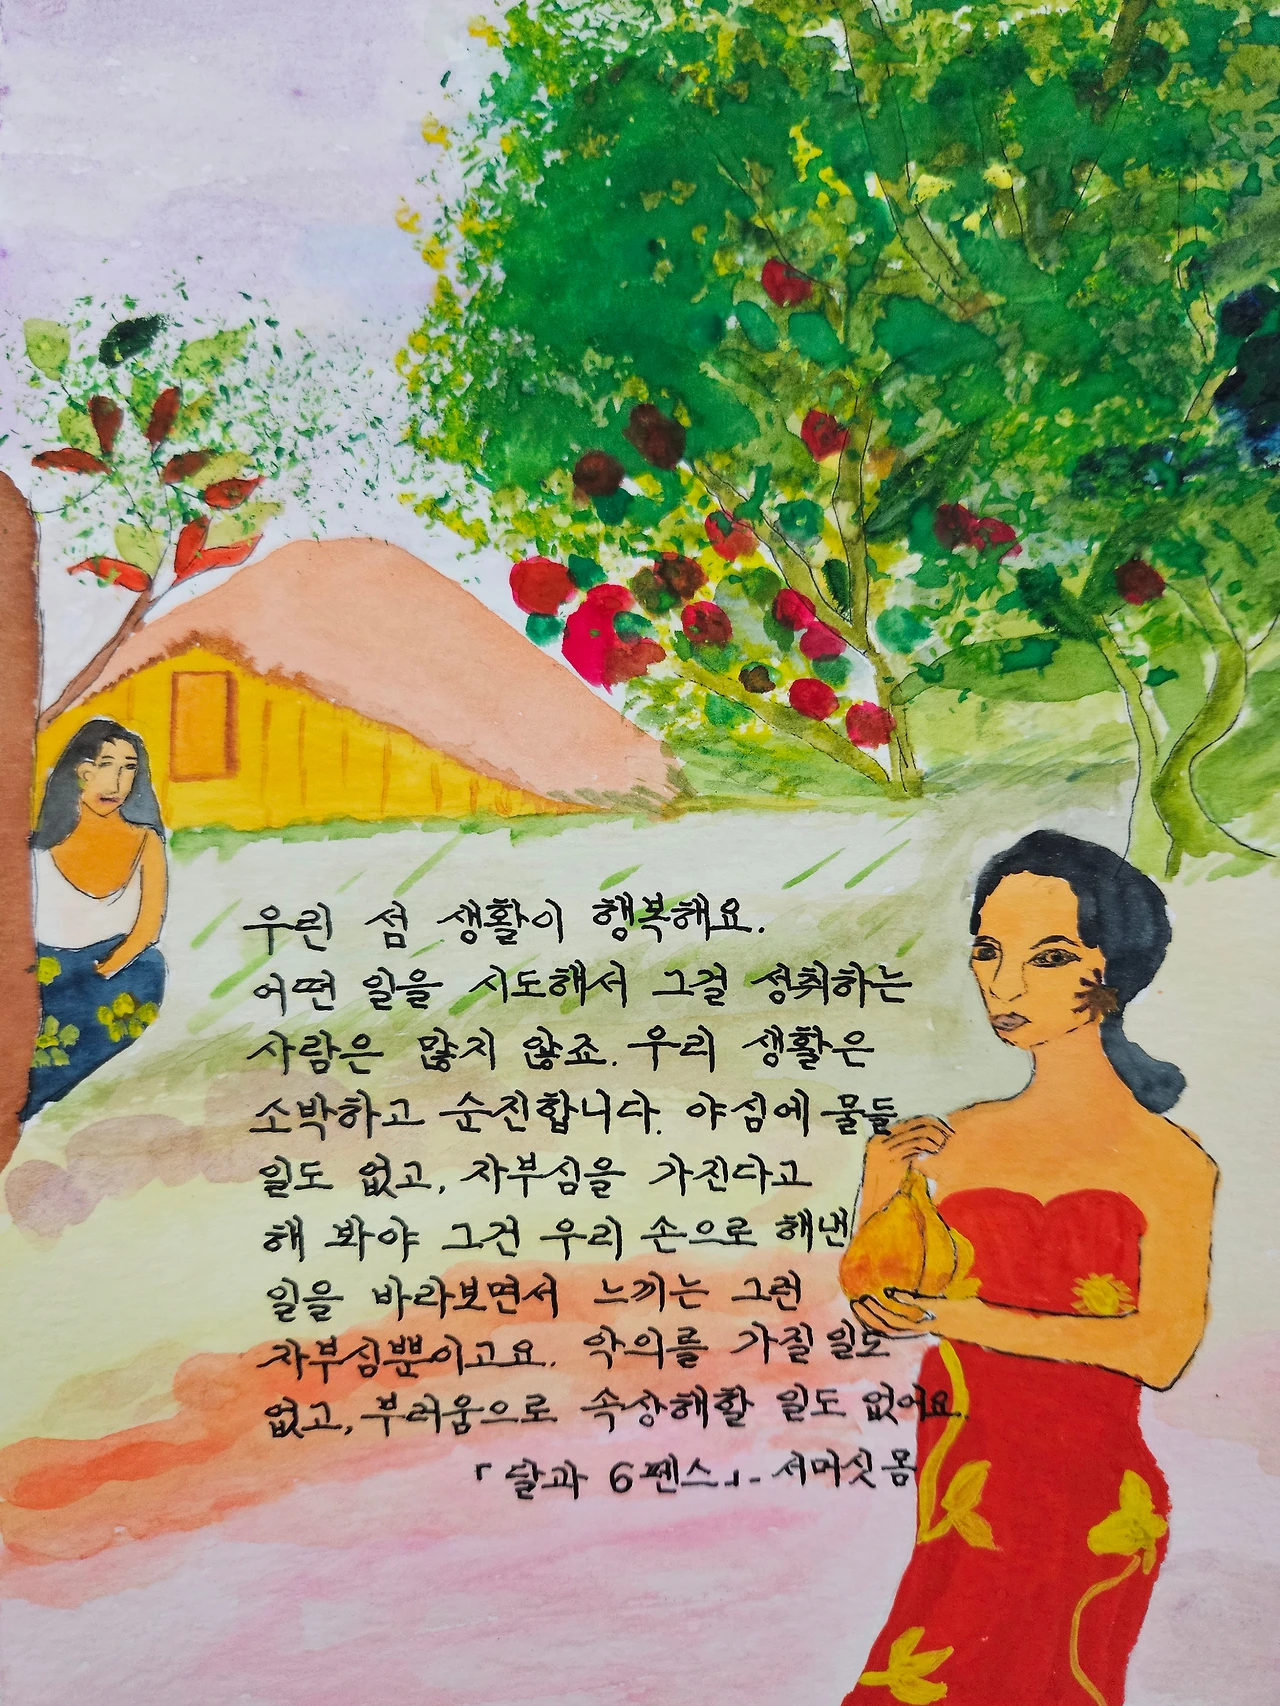 우린 섬 생활이 행복해요.
어떤 일을 시도해서 그걸 성취하는
사람은 많지 않죠. 우리 생활은
소박하고 순진합니다. 야심에 물들
일도 없고, 자부심을 가진다고
해 봐야 그건 우리 손으로 해낸
일을 바라보면서 느끼는 그런
자부심뿐이고요. 악의를 가질 일도
없고, 부러움으로 속상해할 일도 없어요.
「달과 6펜스」- 서머싯 몸